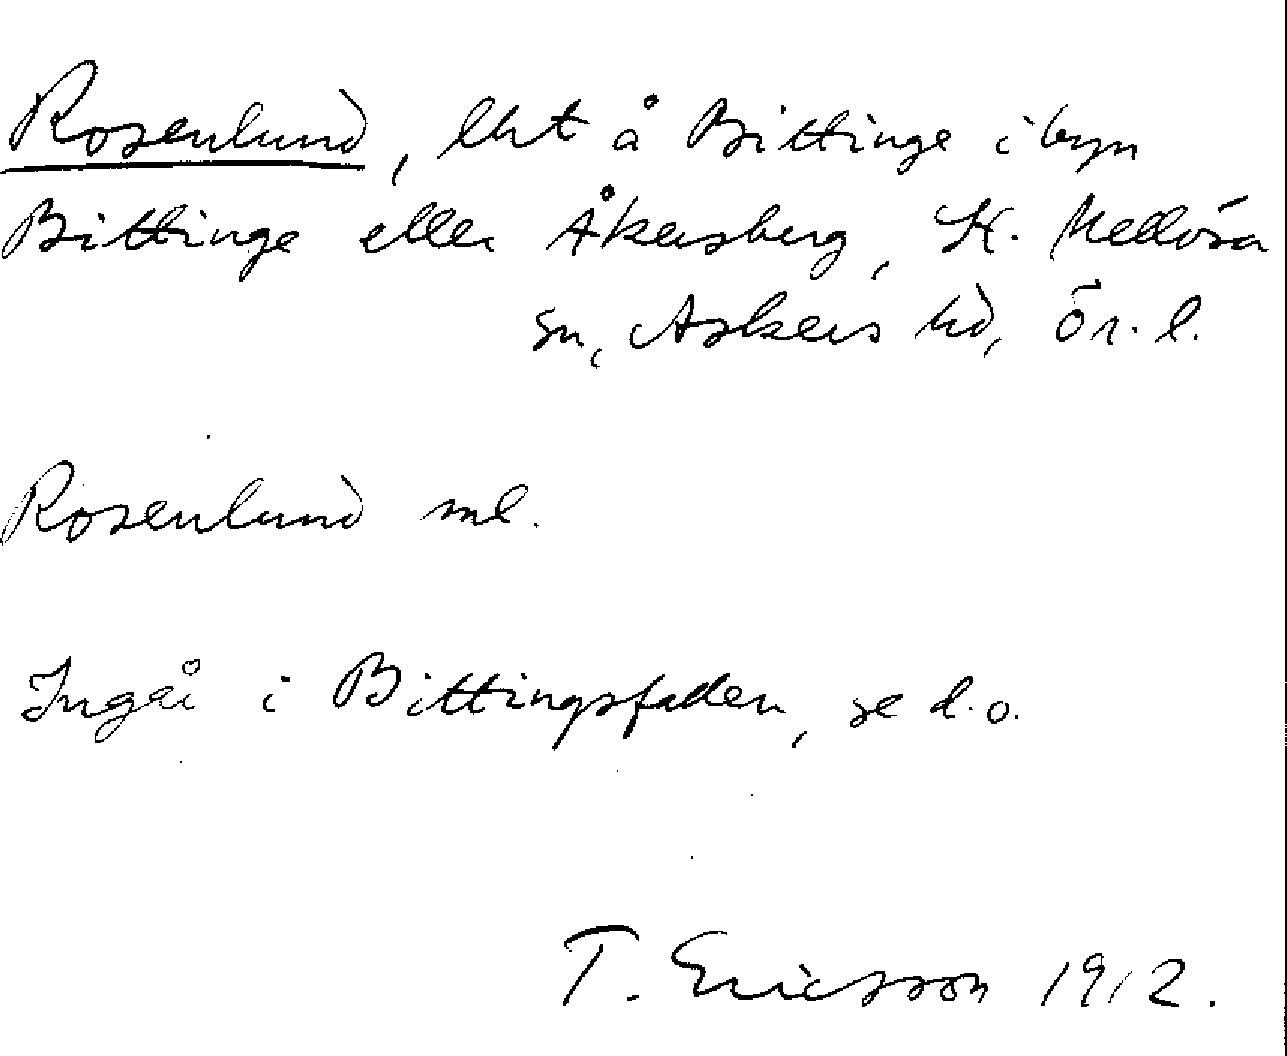 Rosenlund, lht å Bittinge i byn
Bittinge eller Åkersberg, St. Mellösa
sn, Askers hd, Ör. l.
Rosenlund ml.
Ingår i Bittingsfallen, se d.o.
T. Ericsson 1912.